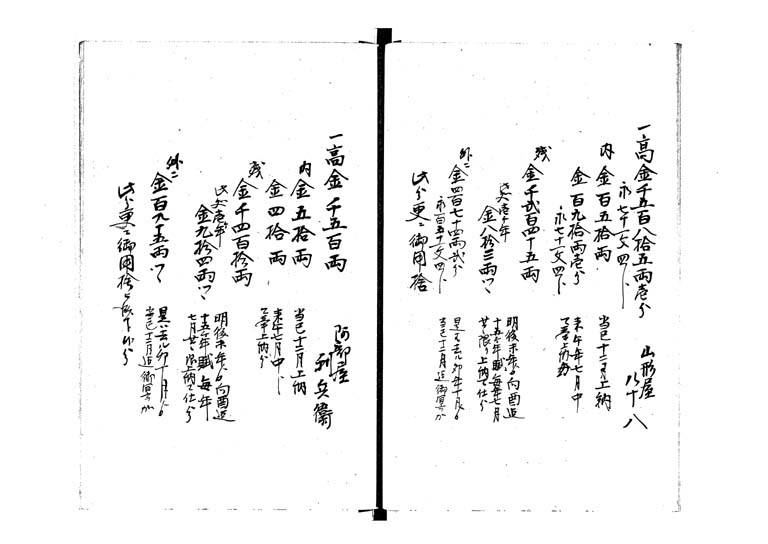 一高金千五百八拾五両壱分
永七十一文四分
山形屋
八十八
内
金百五拾両
当巳十二月上納
金百九拾両壱分
永七十一文四分
来午年七月中
上納
残
金千弐百四十五両
此壱ヶ年
金八拾三両ツヽ
明後未年ゟ向酉迄
十五ヶ年賦毎年七月
廿日限り上納可仕分
外ニ
金四百七十四両弐分
永百五十文四分
是ハ去ル卯年十月ゟ
当巳十二月迄御冥加
此分更ニ御用捨
一高金千五百両
阿部屋
利兵衛
内
金五拾両
当巳十二月上納
金四拾両
来午七月中
可奉上納分
残
金千四百拾両
此壱ヶ年
金九拾四両ツヽ
明後未年ゟ向酉迄
十五ヶ年賦毎年
七月廿日限上納可仕分
外ニ
金百九十五両
是ハ去ル卯十月ゟ
当巳十二月迄御冥加
此分更ニ御用捨被下候分